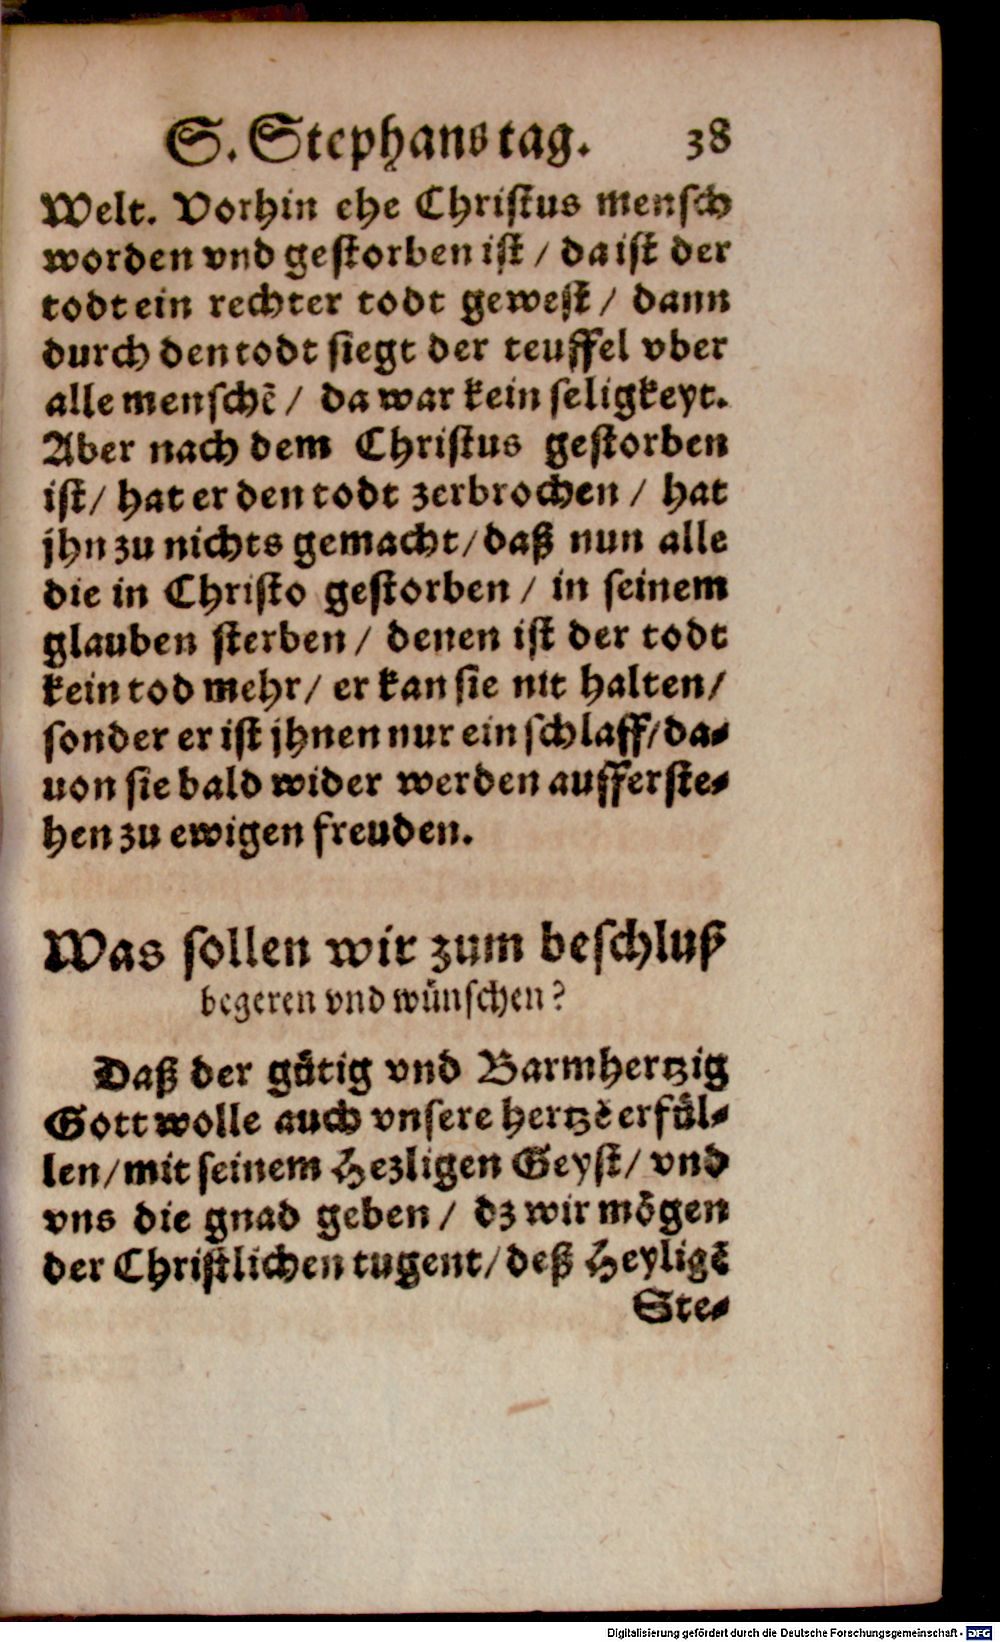 S. Stephans tag. 38
Welt. Vorhin ehe Christus mensch
worden vnd gestorben ist / da ist der
todt ein rechter todt gewest / dann
durch den todt siegt der teuffel vber
alle menschē / da war kein seligkeyt.
Aber nach dem Christus gestorben
ist / hat er den todt zerbrochen / hat
jhn zu nichts gemacht / daß nun alle
die in Christo gestorben / in seinem
glauben sterben / denen ist der todt
kein tod mehr / er kan sie nit halten /
sonder er ist jhnen nur ein schlaff / da-
uon sie bald wider werden aufferste-
hen zu ewigen freuden.
Was sollen wir zum beschluß
begeren vnd wünschen?
Daß der gütig vnd Barmhertzig
Gott wolle auch vnsere hertzē erfül-
len / mit seinem Hezligen Geyst / vnd
vns die gnad geben / dz wir mögen
der Christlichen tugent / deß Heyligē
Ste-
Digitalisierung gefördert durch die Deutsche Forschungsgemeinschaft - DFG